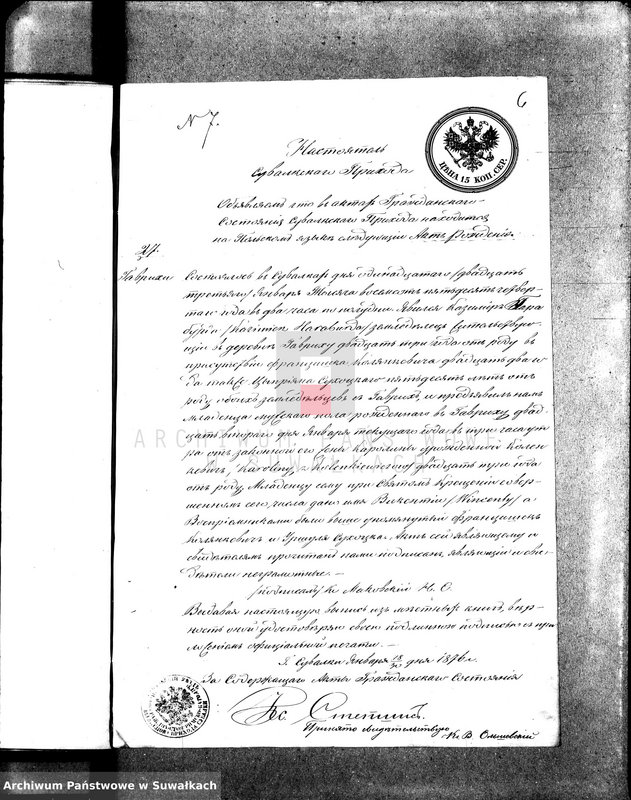 N 7.
6
ЦѢНА 15 КОП. СЕР.
Настоятель
Сувалкскаго Прихода
Объявляетъ что въ актахъ Гражданскаго
Состоянія Сувалкскаго Прихода находится
на Польскомъ языкѣ слѣдующій Актъ рожденія:
27.
Гаврихи
Состоялось въ Сувалкахъ дня одинадцатаго /двадцать
третьяго/ Января Тысяча восемьсотъ пятьдесятъ четвер-
таго года въ два часа по полудни. Явился Казиміръ
/Kazimierz / земледѣлецъ
въ деревнѣ Гаврихи двадцать три года отъ роду въ
присутствіи Францишка Колянковича двадцать два го-
да также Ципріяна Сухоцкаго пятьдесятъ лѣтъ отъ
роду обоихъ земледѣльцевъ съ Гаврихъ, и предъявилъ намъ
Младенца мужскаго пола рожденнаго въ Гаврихахъ двад-
цать втораго дня Января текущаго года въ три часа ут-
ра отъ законной его жены Каролины урожденной Колен-
кевичъ /Karoliny z Kolenkiewiczow/ двадцать три года
отъ роду. Младенцу сему при Святомъ Крещеніи совер-
шенномъ сего числа дано имя Викентій /Wincenty/ а
Воспріемниками были выше упомянутый Францишекъ
Колянковичъ и Уршуля Сухоцка. Актъ сей являющему и
свидѣтелямъ прочитанъ нами подписанъ, являющій и сви-
дѣтели неграмотные. —
/подписалъ/ Кс Маковскій Н. С.
Выдавая настоящую выпись изъ мѣстныхъ книгъ, вѣр-
ность оной удостовѣряю своею подлинною подписью съ при-
ложеніемъ офиціальной печати. —
Г. Сувалки Января 18/30 дня 1896 г.
За Содержащаго Акты Гражданскаго Состоянія
Кс.
Принято свидательствую
Кс. В. Ольшевскій
ARCHIWUM PAŃSTWOWE
W SUWAŁKACH
Archiwum Państwowe w Suwałkach